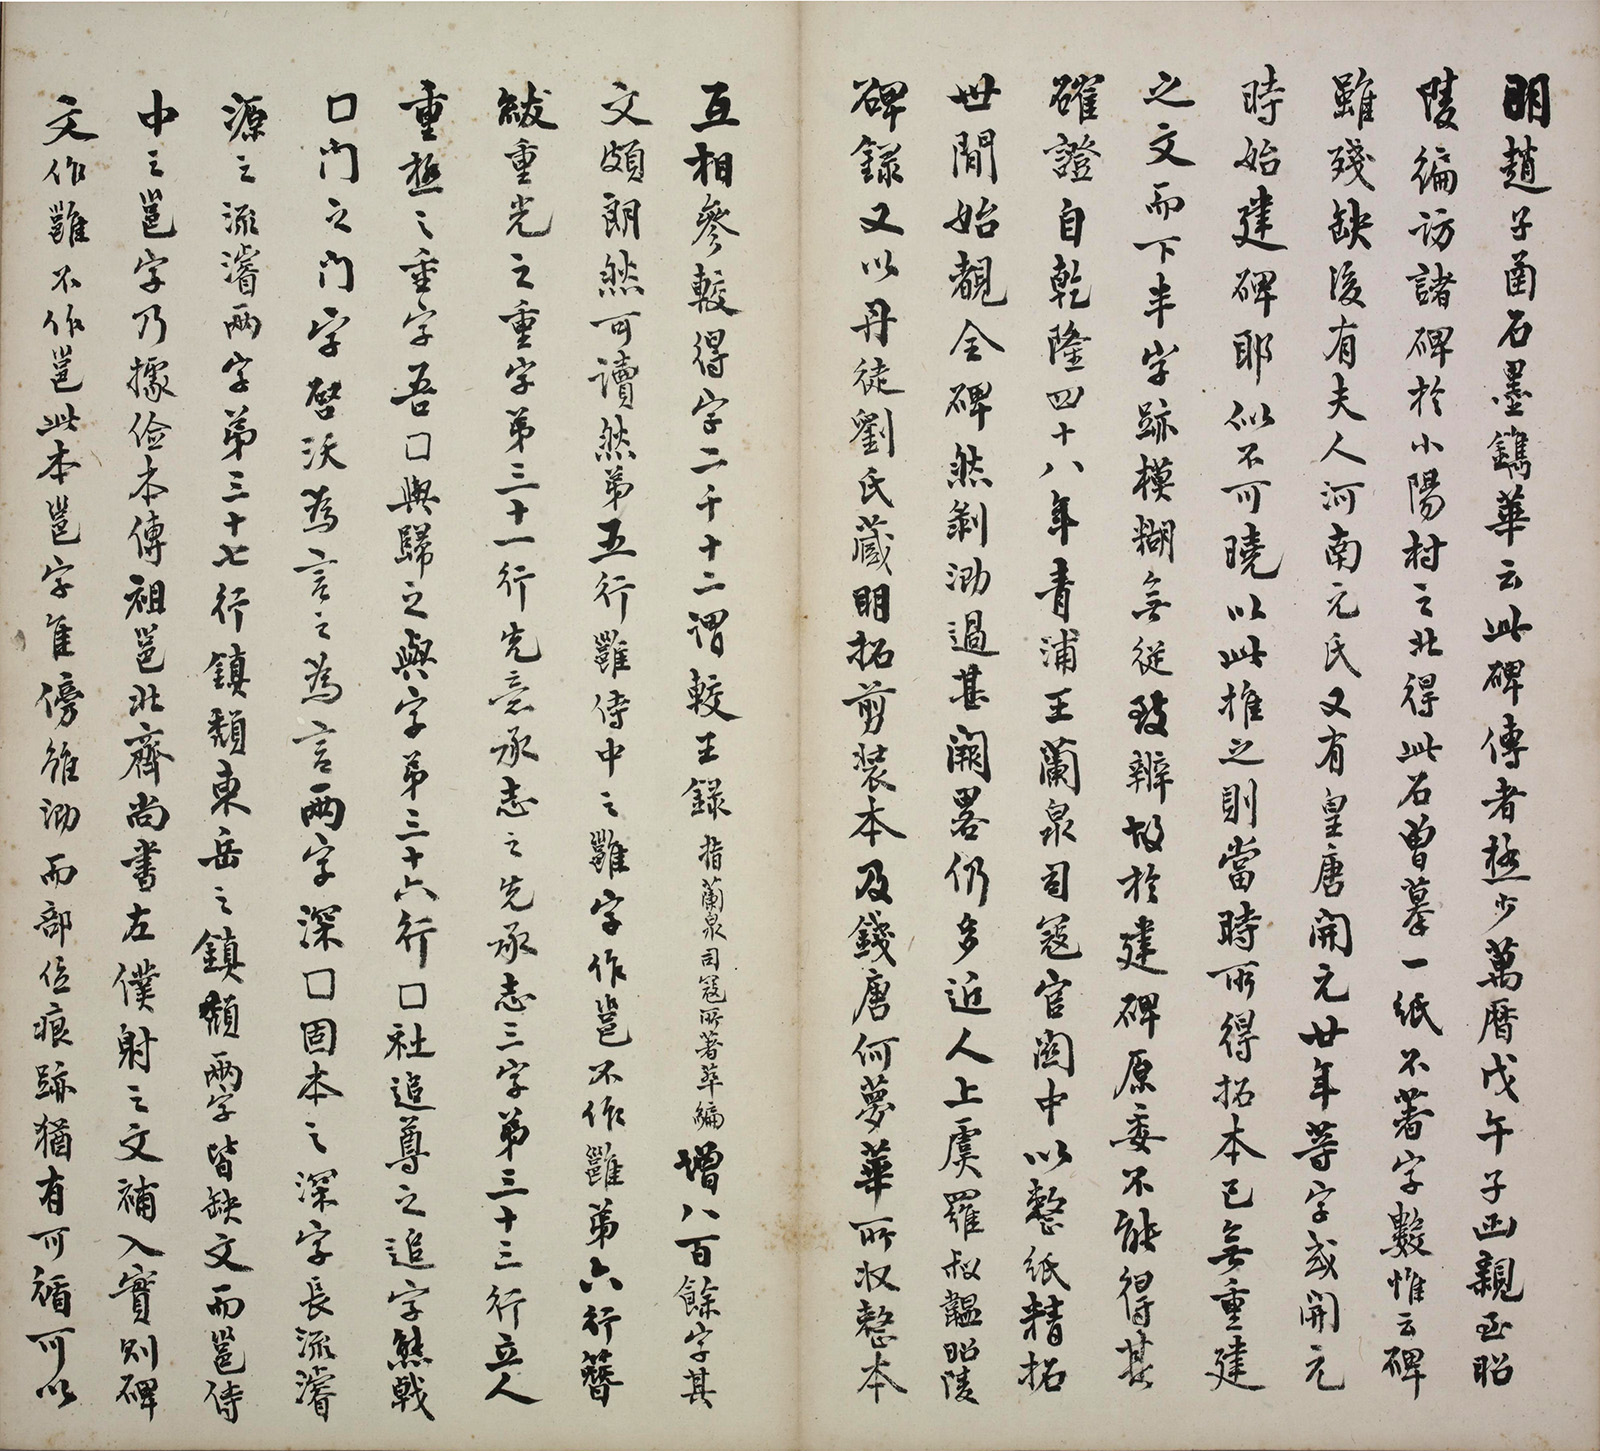 明趙子崡石墨鐫華云此碑傳者極少萬曆戊午子函親至昭
陵徧訪諸碑於小陽村之北得此石曾摹一紙不著字數惟云碑
雖殘缺後有夫人河南元氏又有皇唐開元廿年等字或開元
時始建碑耶似不可曉以此推之則當時所得拓本已無重建
之文而下半字跡模糊無從致辨故於建碑原委不能得其
確證自乾隆四十八年青浦王蘭泉司寇官關中以整紙精拓
世間始覩全碑然剝泐過甚闕畧仍多近人上虞羅叔韞昭陵
碑錄又以丹徒劉氏藏明拓剪裝本及錢唐何夢華所收整本
互相參較得字二千十二謂較王錄指蘭泉司寇所著萃編增八百餘字其
文頗朗然可讀然第五行雝侍中之雝字作邕不作雝第六行簪
紱重光之重字第三十一行先意承志之先承志三字第三十三行立人
重極之重字吾口與歸之與字第三十六行口社追尊之追字熊戟
口門之門字啓沃為言之為言兩字深口固本之深字長流濬
源之流濬兩字第三十七行鎮頹東岳之鎮頹兩字皆缺文而邕侍
中之邕字乃據儉本傳祖邕北齊尚書左僕射之文補入實則碑
文作雝不作邕此本邕字隹傍雖泐而部位痕跡猶有可循可以